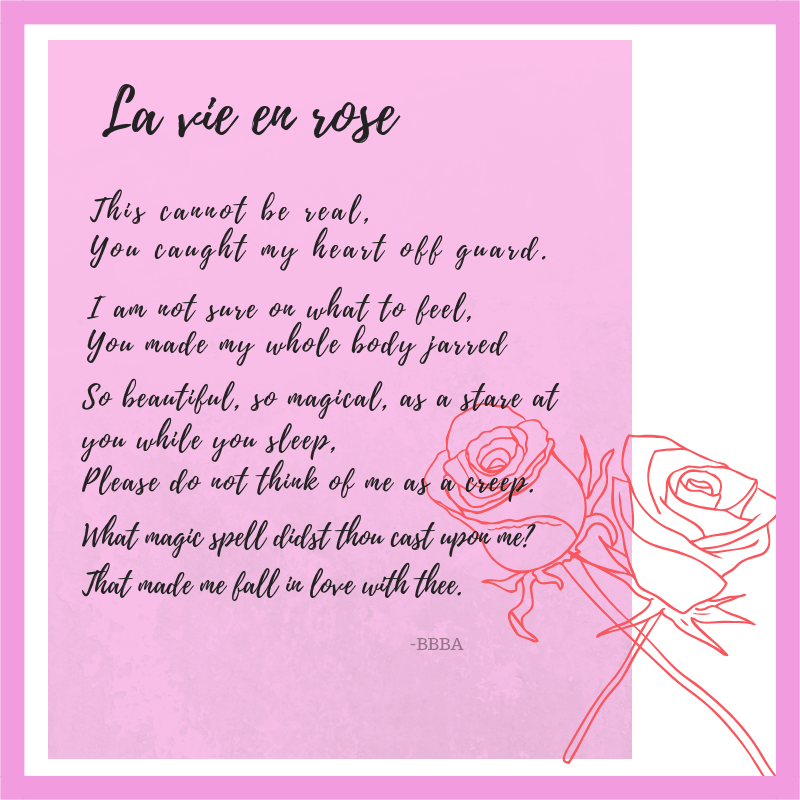 La vie en rose
This cannot be real,
You caught my heart off guard.
I am not sure on what to feel,
You made my whole body jarred
So beautiful, so magical, as a stare at
you while you sleep,
Please do not think of me as a creep.
What magic spell didst thou cast upon me?
That made me fall in love with thee.
-BBBA